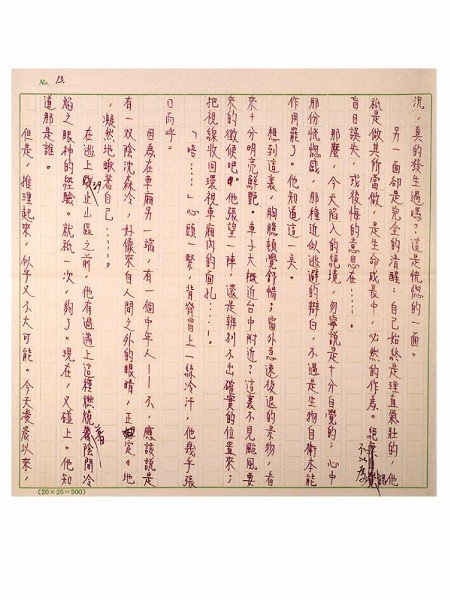 No. 13.
況,真的發生過嗎?這是恍惚的一面。
另一面卻是完全的清醒:自己始終是理直氣壯的,他
祇是做其所當做,是生命成長中,必然的作為。絕不以為
盲目誤失,或後悔的意思在……。
那麼,今天陷入的絕境,勿寧說是十分自覺的;心中
那份恍惚感,那種近似逃避的辯白,不過是生物自衛本能
作用罷了。他知道這一點。
想到這裏,胸膽頓覺舒暢;窗外急速後退的景物,看
來十分明亮鮮艷。車子大概近台中附近?這裏不見颱風要
來的徵候吧。他張望一陣,還是辨別不出確實的位置來;
把視線收回環視車廂內的面孔……。
「咯……」心頭一緊,背脊冒上一絲冷汗,他幾乎張
口而呼。
因為在車廂另一端,有一個中年人——不,應該說是
有一双陰沈森冷,好像來自人間之外的眼睛,正定定地
,凝然地瞅著自己……。
在逃上 山區之前,他有過遇上這種 陰冷
焰之眼神的經驗。就祇一次,夠了。現在,又碰上。他知
道那是誰。
但是,推理起來,似乎又不大可能。今天凌晨以來,
(20×25=500)